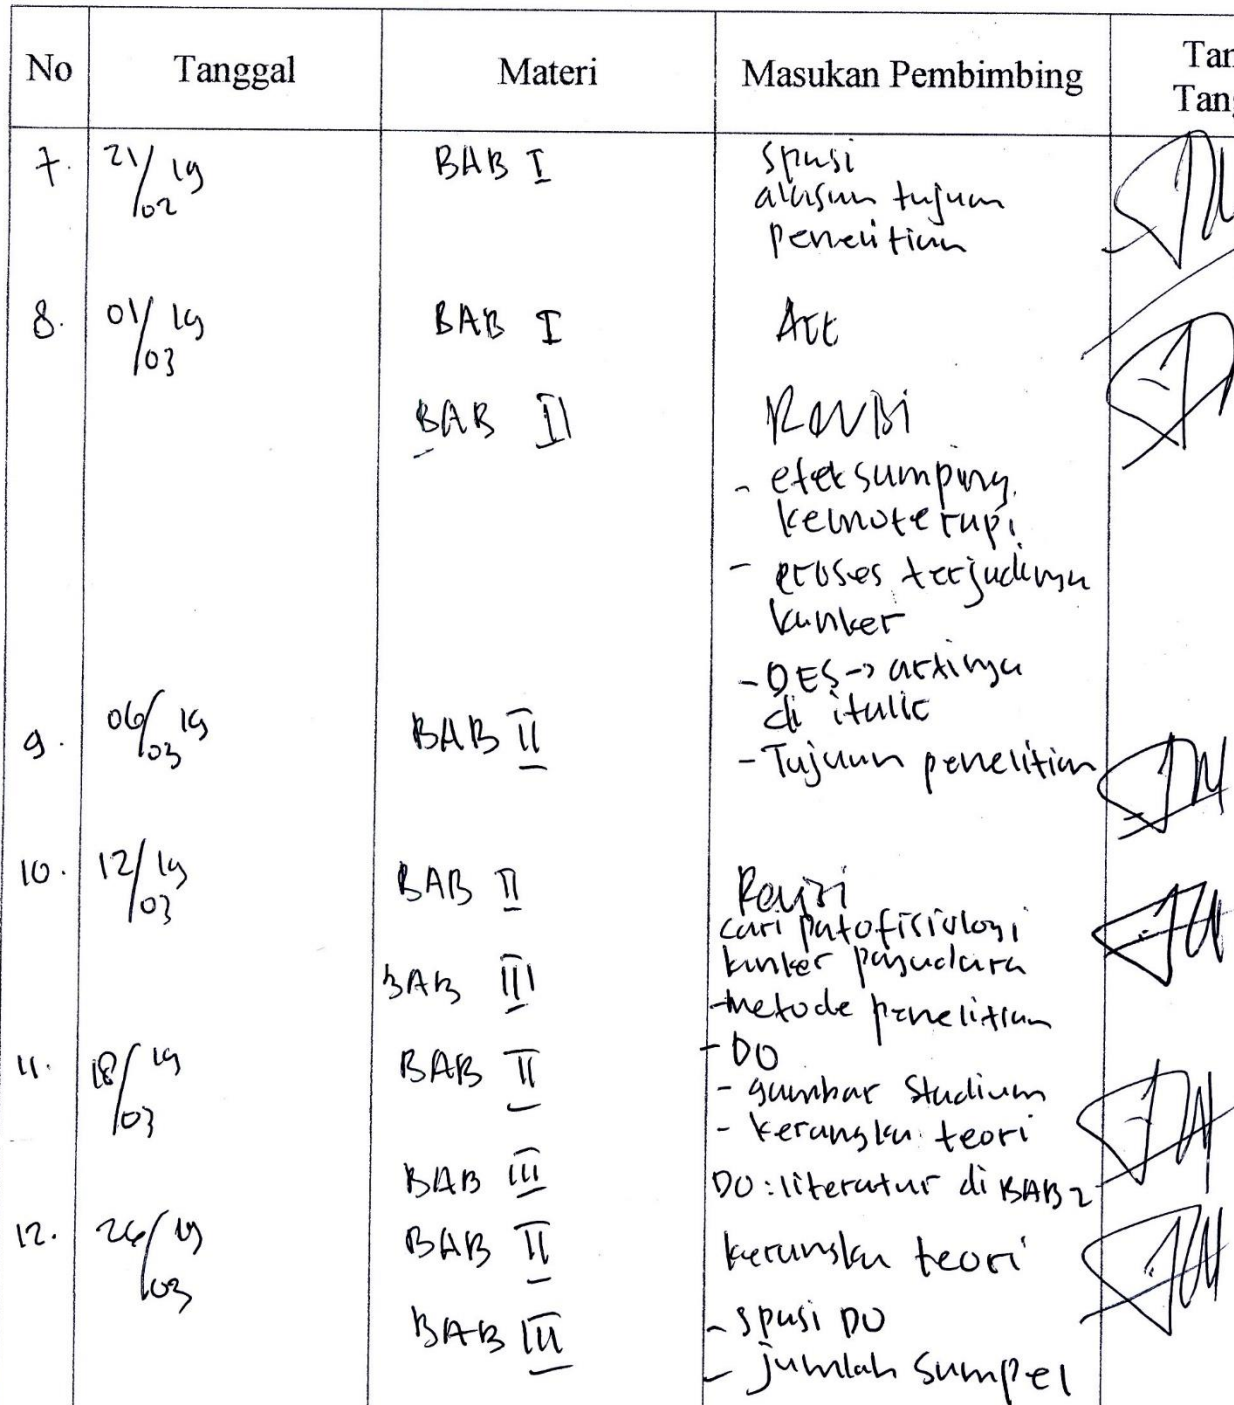 No Tanggal Materi Masukan Pembimbing Tan
Tang
7. 21/02 19 BAB I spasi
alasan tujuan
penelitian
8. 01/03 19 BAB I Acc
BAB II Revisi
- efek samping
kemoterapi
- proses terjadinya
kanker
- DES -> artinya
di italic
9. 06/03 19 BAB II - Tujuan penelitian
10. 12/03 19 BAB II Revisi
cari patofisiologi
kanker payudara
BAB III - metode penelitian
- DO
11. 18/03 19 BAB II - gambar stadium
- kerangka teori
BAB III DO : literatur di BAB 2
12. 26/03 19 BAB II kerangka teori
BAB III - spasi DO
- jumlah sampel